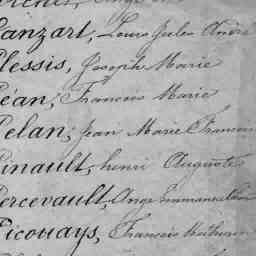 Lanzart, Louis Jules André
Plessis, Joseph Marie
Péan, Francois Marie
Pelan, Jean Marie Francois
Pinault, henri Auguste
Percevault, Ange Emmanuel
Picouays, Francois Mathurin